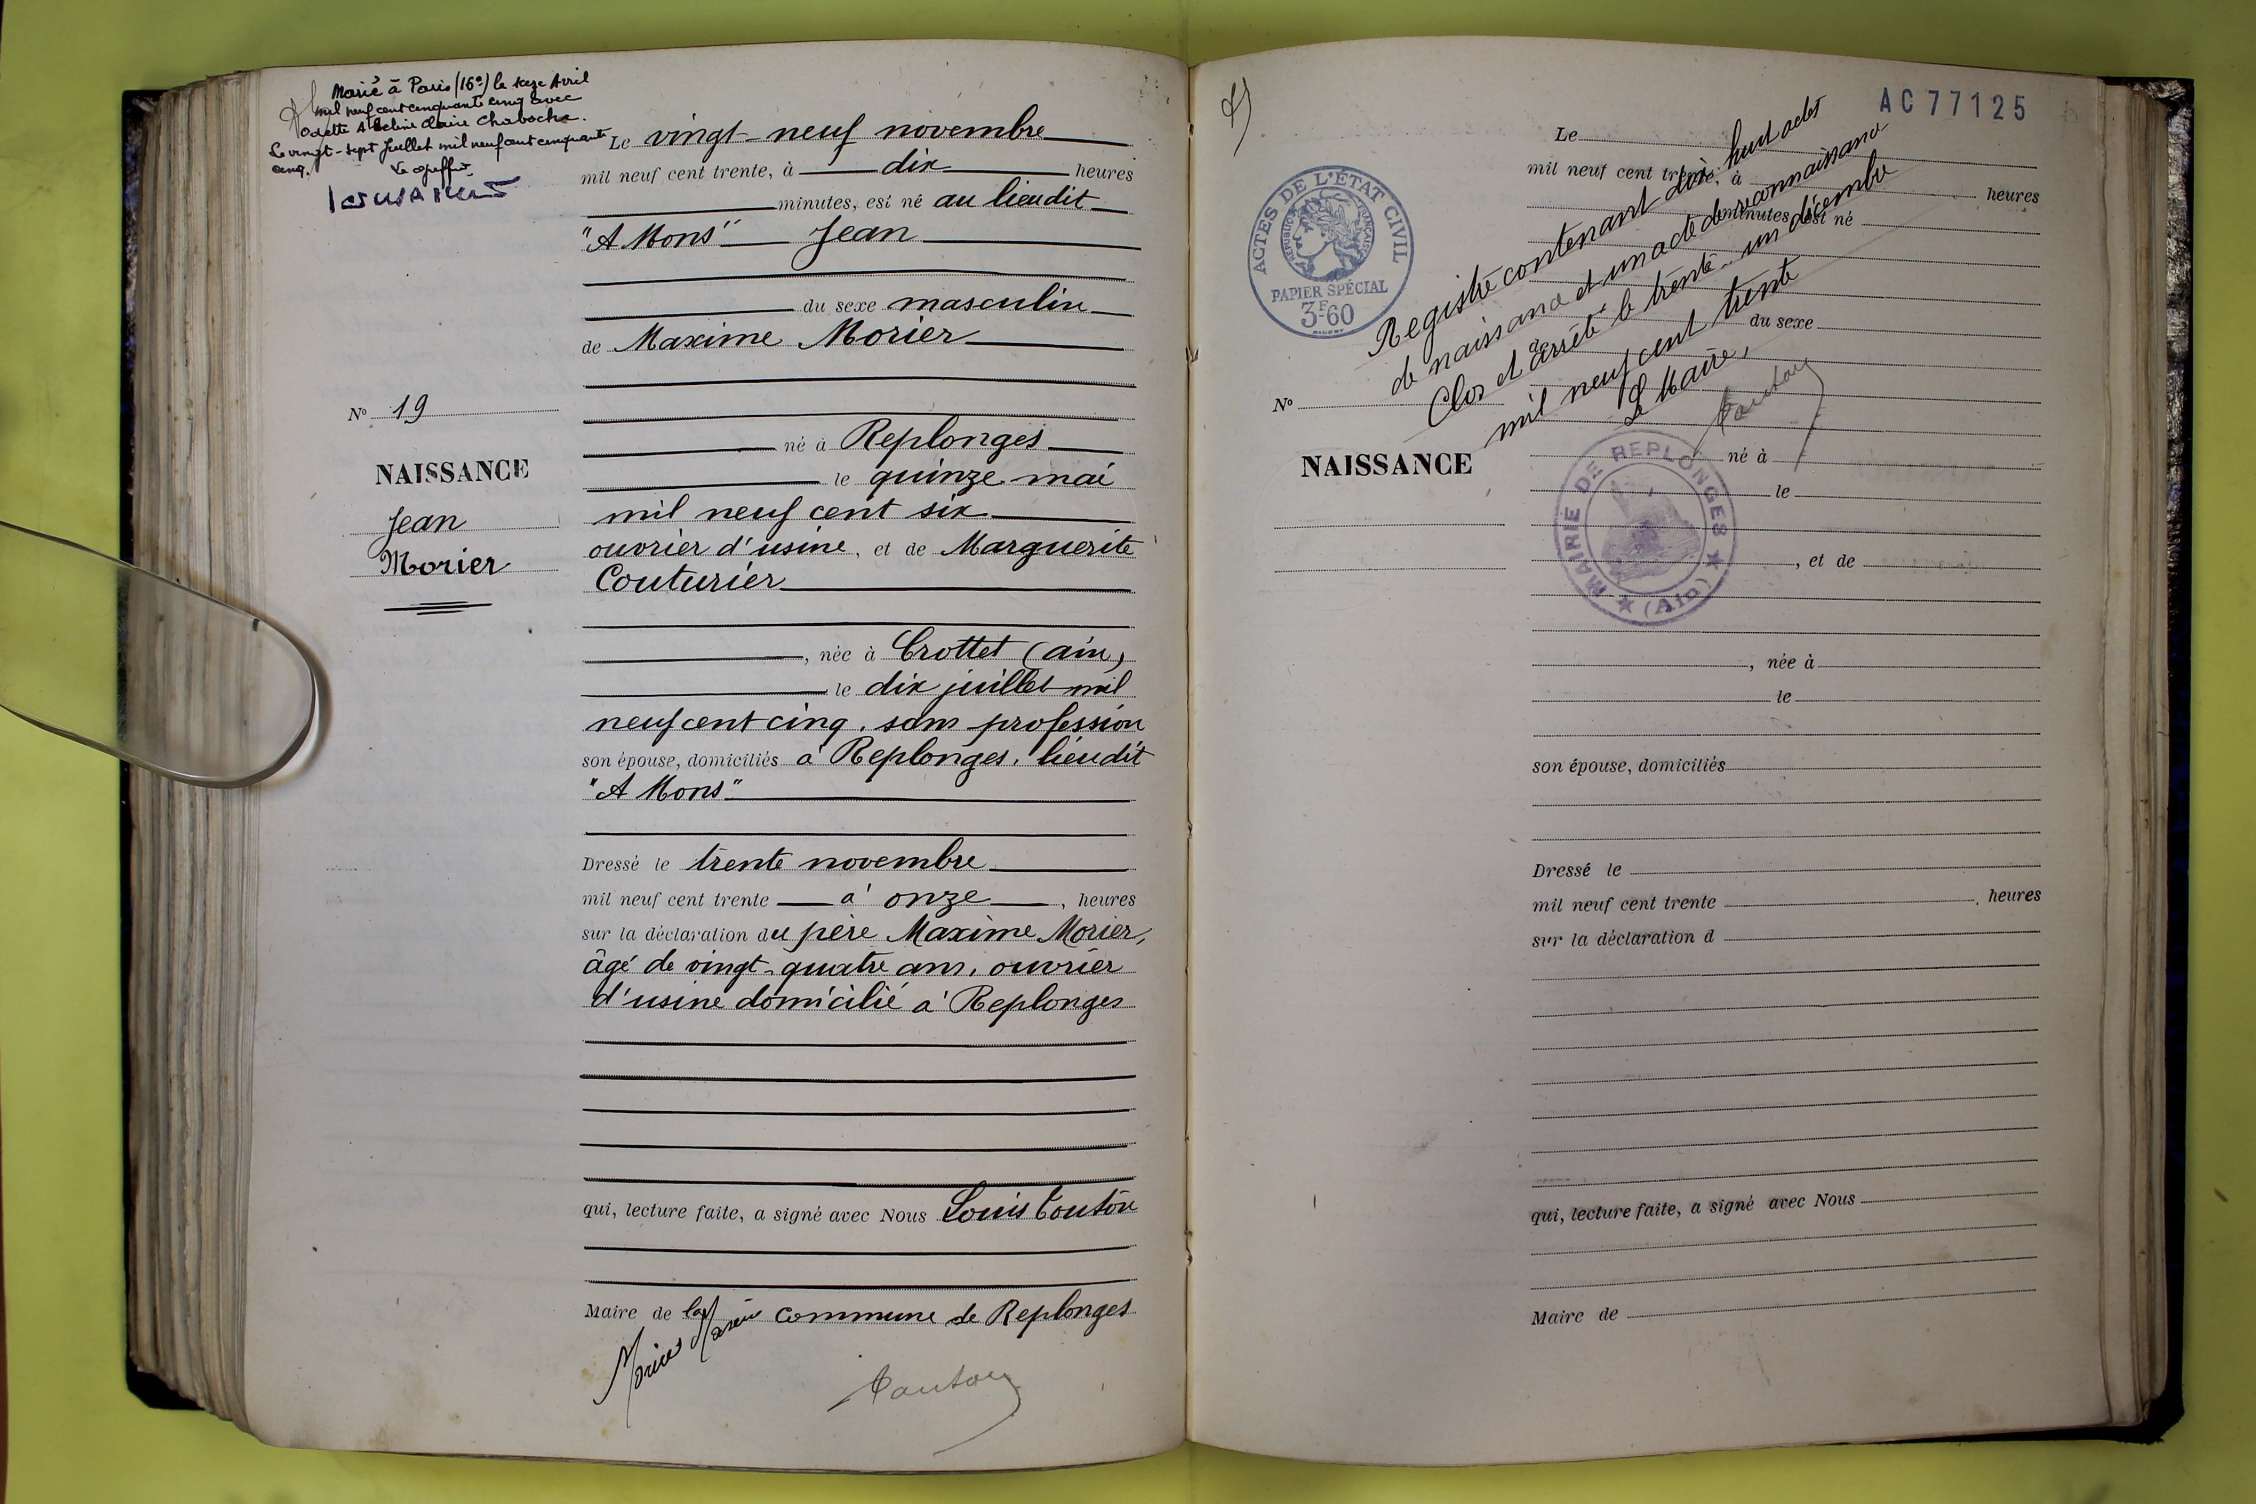 Marié à Paris (16e) le seize Avril
mil neuf cent cinquante cinq avec
Odette Adeline Claire Chaboche.
Le vingt-sept Juillet mil neuf cent cinquante
cinq. Le greffier
Le vingt-neuf novembre
mil neuf cent trente, à dix heures
minutes, est né au lieudit
"A Mons" Jean
du sexe masculin
de Maxime Morier
No 19
né à Replonges
NAISSANCE
le quinze mai
Jean
mil neuf cent six
Morier
ouvrier d'usine, et de Marguerite
Couturier
, née à Crottet (ain)
le dix juillet mil
neuf cent cinq, sans profession
son épouse, domiciliés à Replonges, lieudit
"A Mons"
Dressé le trente novembre
mil neuf cent trente à onze, heures
sur la déclaration du père Maxime Morier,
âgé de vingt-quatre ans, ouvrier
d'usine domicilié à Replonges
qui, lecture faite, a signé avec Nous Louis Couton
Maire de la commune de Replonges
Morier Maxime
Couton
AC 77125
ACTES DE L'ÉTAT CIVIL
RÉPUBLIQUE FRANÇAISE
PAPIER SPÉCIAL
3F60
Registre contenant dix huit actes
de naissance et un acte de reconnaissance
Clos et arrêté le trente un décembre
mil neuf cent trente
Le Maire,
Couton
MAIRIE DE REPLONGES
(Ain)
Le
mil neuf cent trente, à heures
minutes, est né
du sexe
de
No
NAISSANCE
né à
le
, et de
, née à
le
son épouse, domiciliés
Dressé le
mil neuf cent trente , heures
sur la déclaration d
qui, lecture faite, a signé avec Nous
Maire de